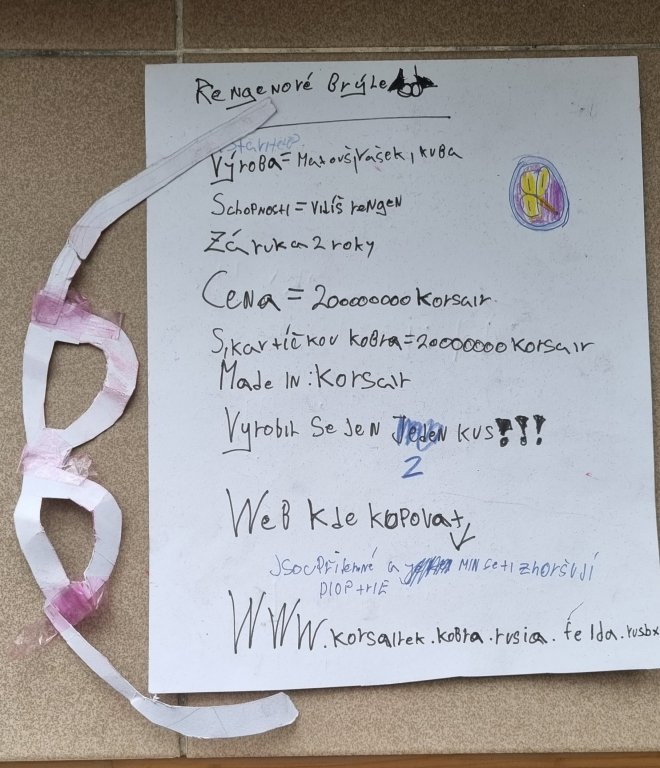 Rengenové Brýle
Výroba = Matouš, Vašek, Kuba
Schopnosti = vidíš rengen
Záruka 2 roky
Cena = 200000000 Korsair
S, kartičkou kobra = 20000000 Korsair
Made in : Korsair
Vyrobil se jen jeden kus!!!
2
Web kde kupovat
Jsou příjemné a míň se ti zhoršují
dioptrie
WWW.korsairek.kobra.rusia.felda.rusbx